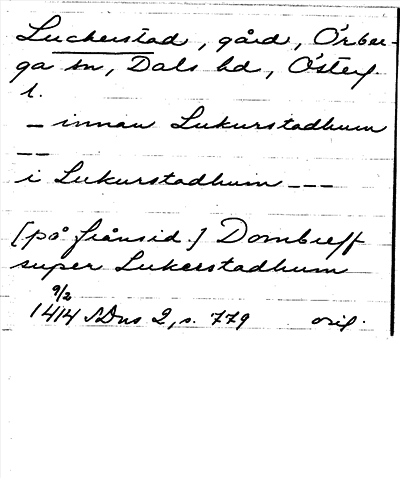 Luckerstad, gård, Örber-
ga sn, Dals hd, Österg.
l.
– innan Lukurstadhum
--
i Lukurstadhum ---
[på frånsid.] Dombreff
super Lukerstadhum
9/2
1414 SDns 2, s. 779 orig.